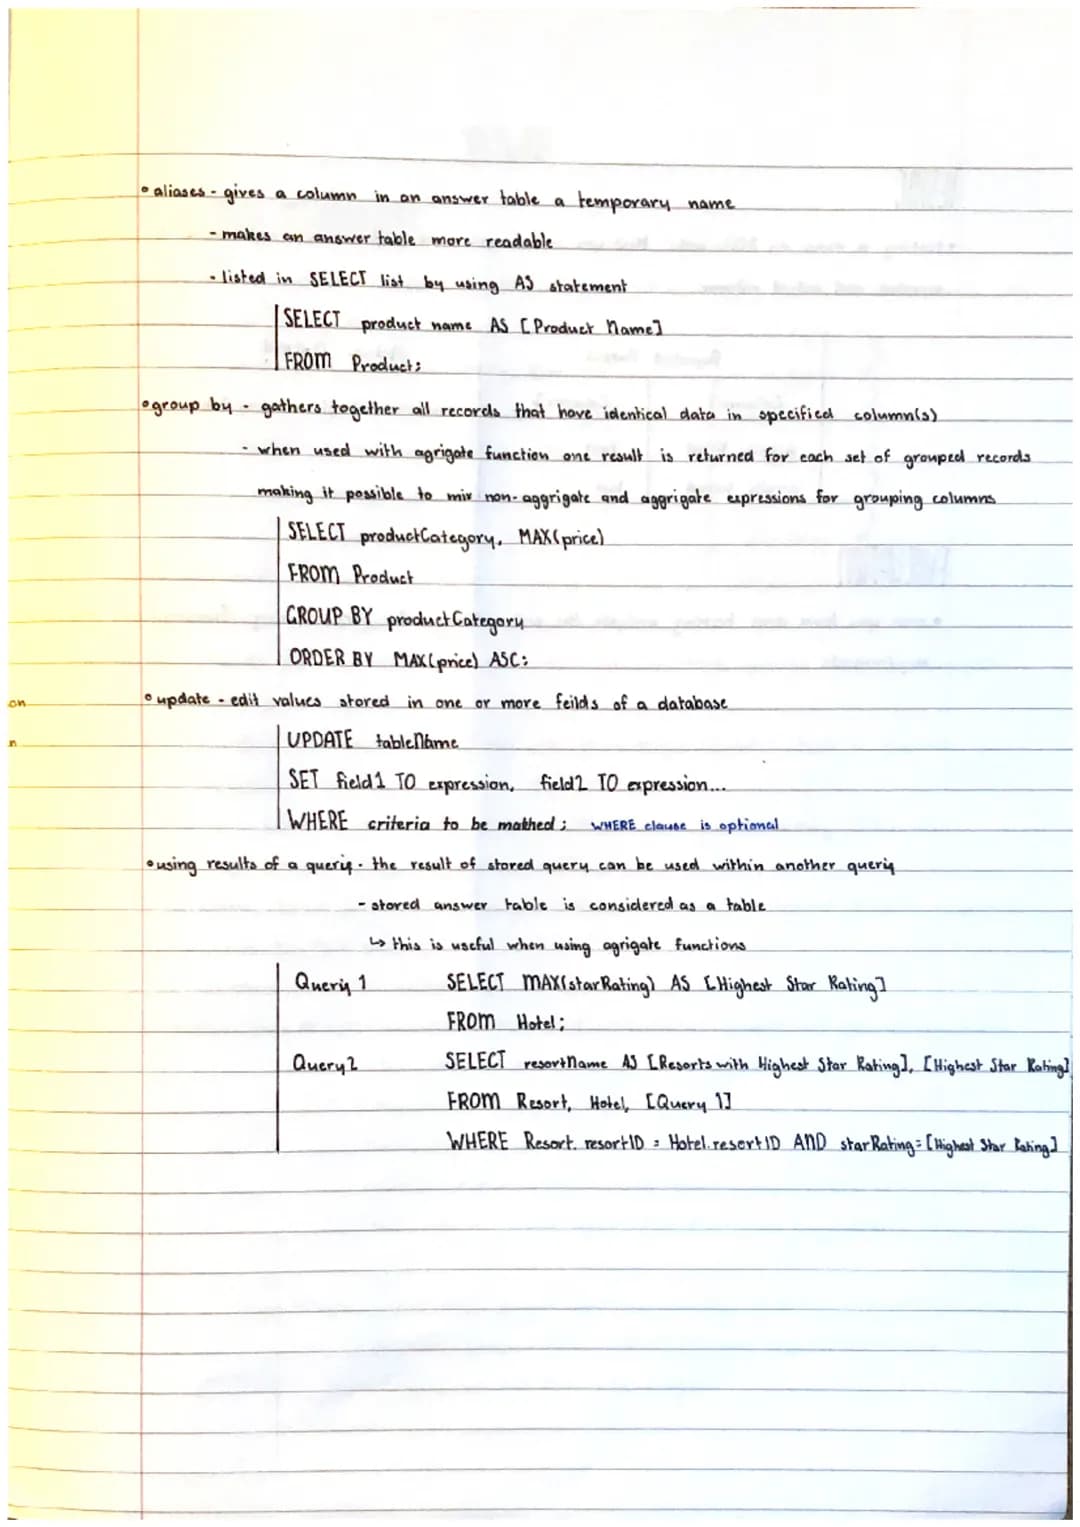 • aliases - gives a column in an answer table a temporary name
- makes an answer table more readable
- listed in SELECT list by using AS statement
SELECT product name AS [Product Name]
FROM Product;
• group by - gathers together all records that have identical data in specified column(s)
- when used with agrigate function one result is returned for each set of grouped records
making it possible to mix non-aggrigate and aggrigate expressions for grouping columns
SELECT productCategory, MAX(price)
FROM Product
GROUP BY productCategory
ORDER BY MAX(price) ASC;
on
• update - edit values stored in one or more feilds of a database
n
UPDATE tableName
SET field1 TO expression, field2 TO expression...
WHERE criteria to be mathed; WHERE clause is optional
• using results of a query - the result of stored query can be used within another query
- stored answer table is considered as a table
↳ this is useful when using agrigate functions
Query 1 SELECT MAX(starRating) AS [Highest Star Rating]
FROM Hotel;
Query 2 SELECT resortName AS [Resorts with Highest Star Rating], [Highest Star Rating]
FROM Resort, Hotel, [Query 1]
WHERE Resort.resortID = Hotel.resortID AND starRating = [Highest Star Rating]